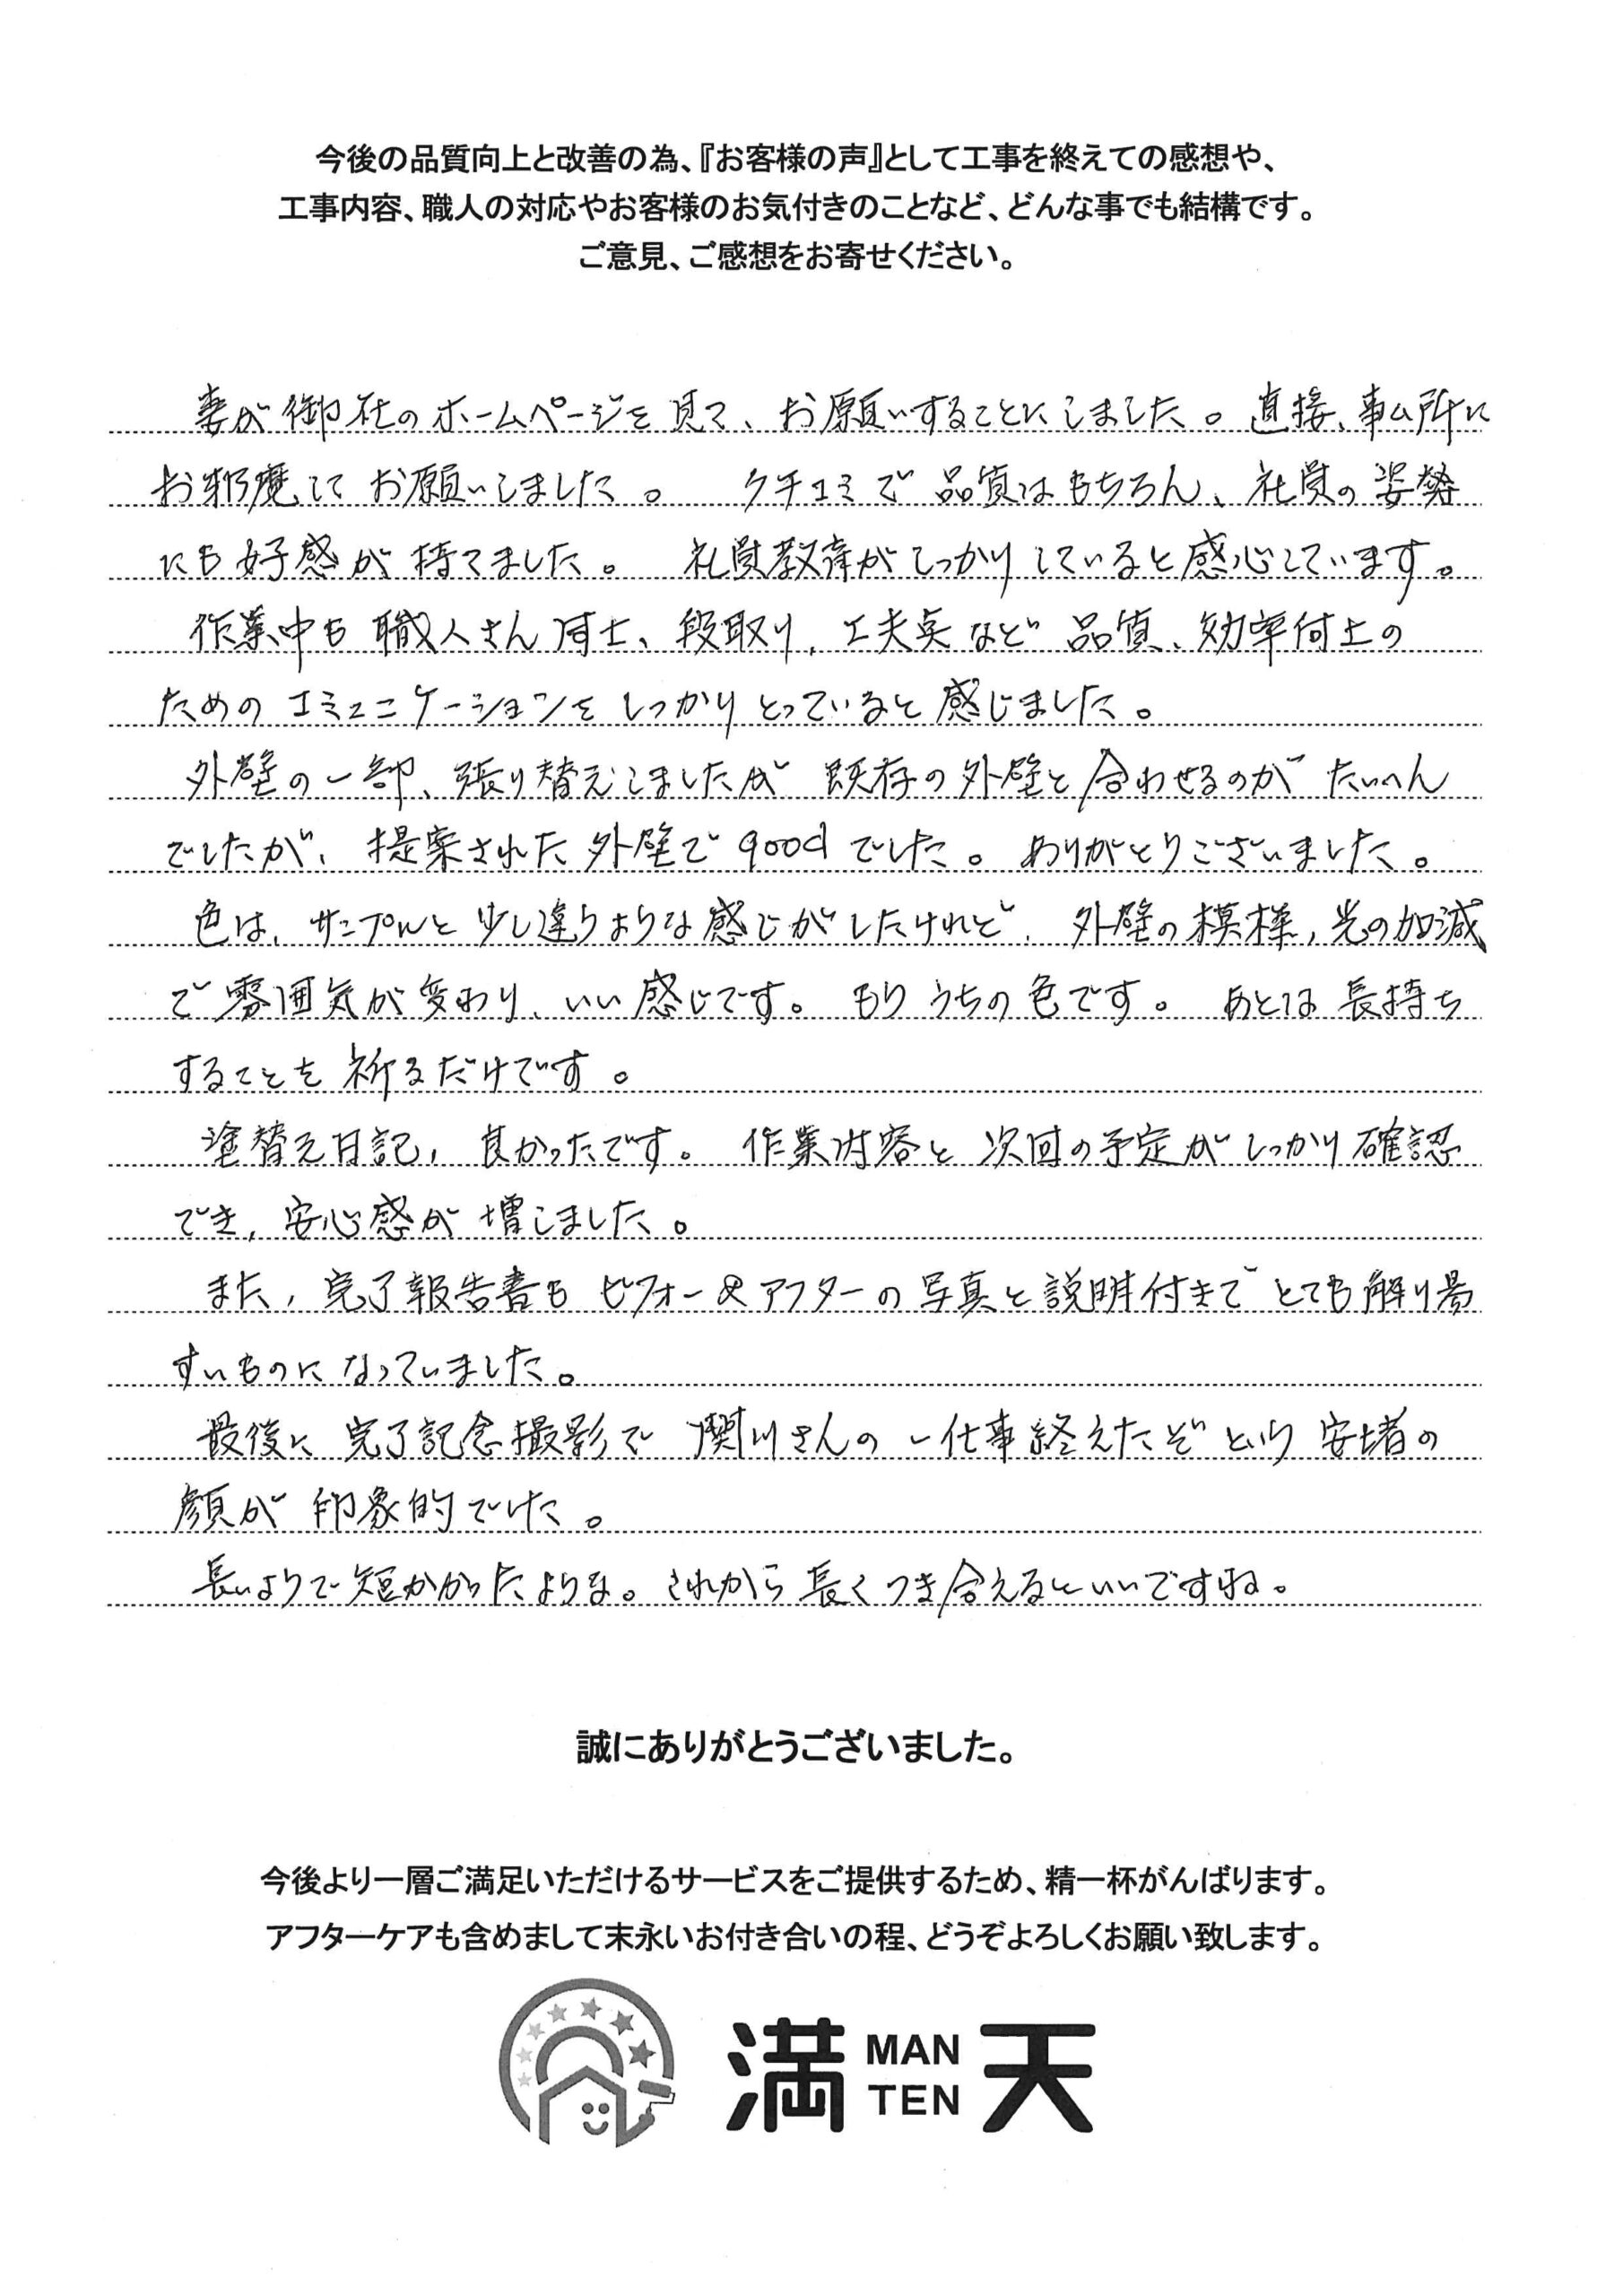 今後の品質向上と改善の為、『お客様の声』として工事を終えての感想や、
工事内容、職人の対応やお客様のお気付きのことなど、どんな事でも結構です。
ご意見、ご感想をお寄せください。
妻が御社のホームページを見て、お願いすることにしました。直接、事ム所に
お邪魔してお願いしました。クチコミで品質はもちろん、社員の姿勢
にも好感が持てました。社員教育がしっかりしていると感心しています。
作業中も職人さん同士、段取り、工夫点など品質、効率向上の
ためのコミュニケーションをしっかりとっていると感じました。
外壁の一部、張り替えしましたが既存の外壁と合わせるのがたいへん
でしたが、提案された外壁でgoodでした。ありがとうございました。
色は、サンプルと少し違うような感じがしたけれど、外壁の模様,光の加減
で雰囲気が変わり、いい感じです。もううちの色です。あとは長持ち
することを祈るだけです。
塗替え日記,良かったです。作業内容と次回の予定がしっかり確認
でき,安心感が増しました。
また,完了報告書もビフォー&アフターの写真と説明付きでとても解り易
すいものになっていました。
最後に完了記念撮影で関川さんの一仕事終えたぞという安堵の
顔が印象的でした。
長いようで短かかったような。これから長くつき合えるといいですね。
誠にありがとうございました。
今後より一層ご満足いただけるサービスをご提供するため、精一杯がんばります。
アフターケアも含めまして末永いお付き合いの程、どうぞよろしくお願い致します。
満 MAN TEN 天